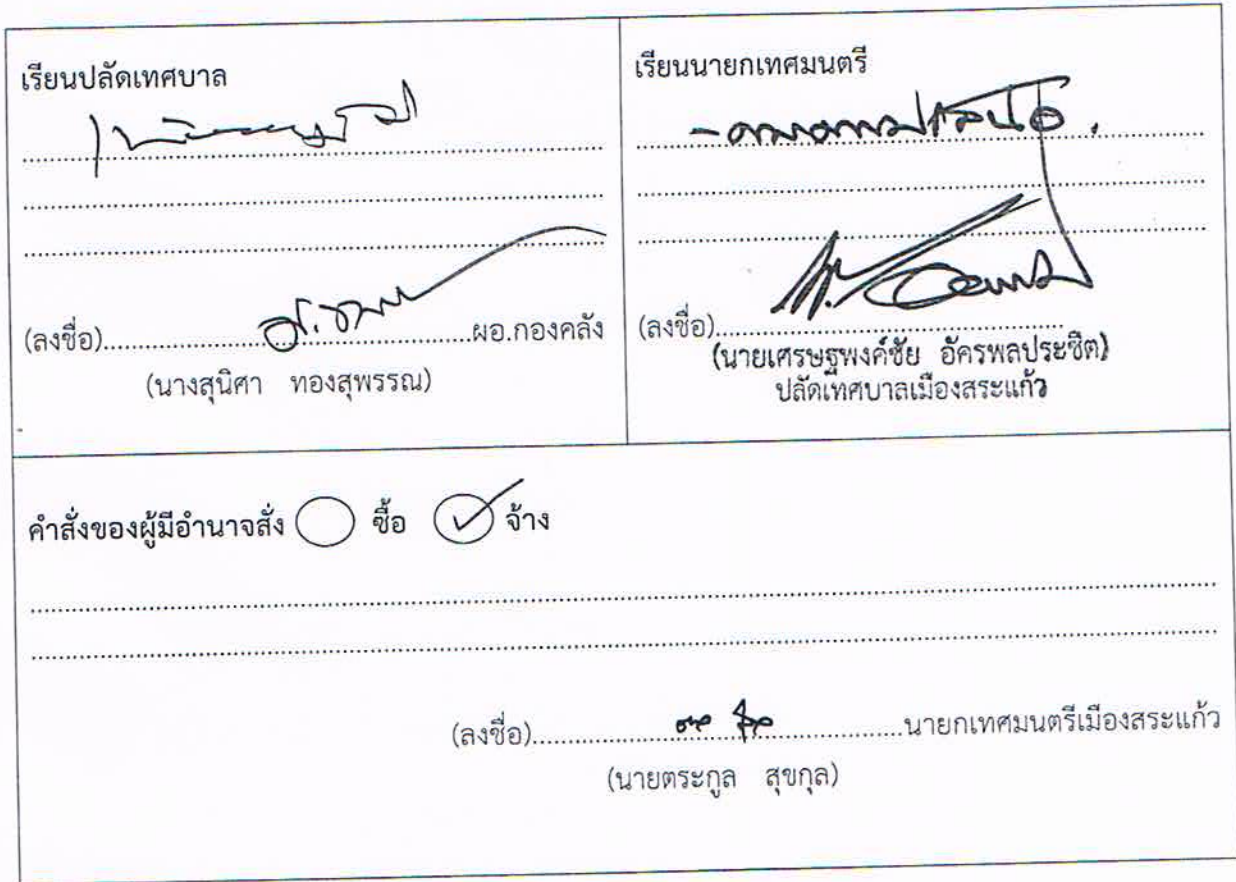 เรียนปลัดเทศบาล
(ลงชื่อ)..........ผอ.กองคลัง
(นางสุนิศา ทองสุพรรณ)
เรียนนายกเทศมนตรี
(ลงชื่อ)..........
(นายเศรษฐพงศ์ชัย อัครพลประชิต)
ปลัดเทศบาลเมืองสระแก้ว
คำสั่งของผู้มีอำนาจสั่ง ซื้อ จ้าง
(ลงชื่อ)..........นายกเทศมนตรีเมืองสระแก้ว
(นายตระกูล สุขกุล)